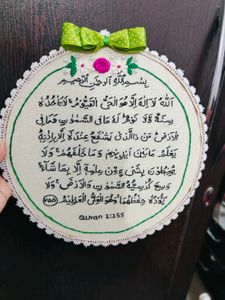 بسم الله الرحمن الرحيم
الله لا اله الا هو الحي القيوم لا تاخذه
سنة ولا نوم له ما في السموت وما في
الارض من ذا الذي يشفع عنده الا باذنه
يعلم ما بين ايديهم وما خلفهم ولا
يحيطون بشيء من علمه الا بما شاء
وسع كرسيه السموت والارض ولا
يؤده حفظهما وهو العلي العظيم ٢٥٥
Quran 2:255